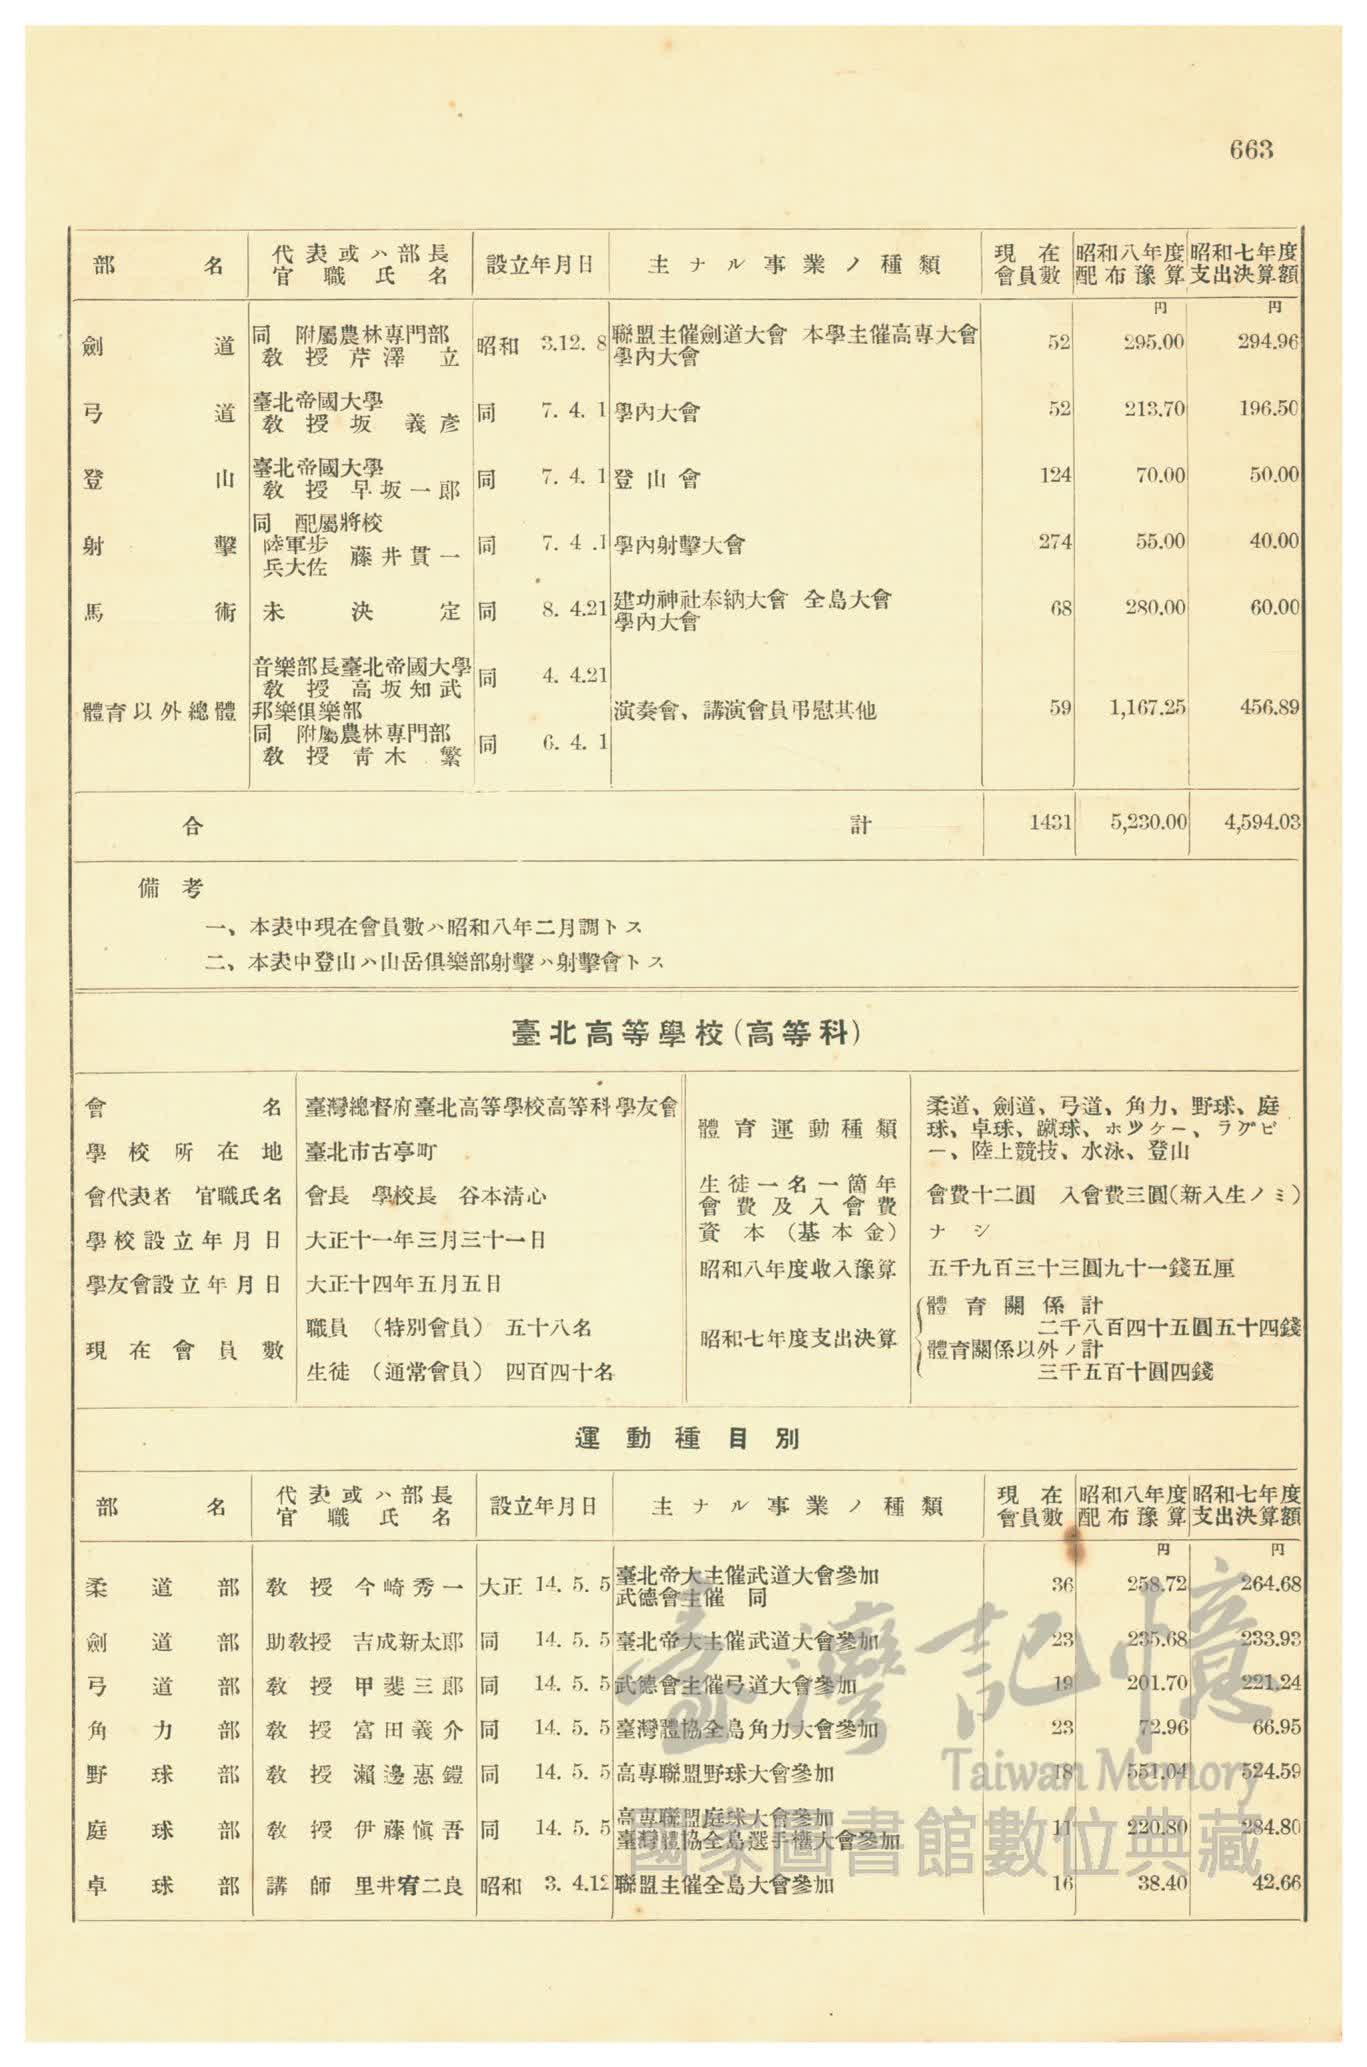 663
部名 代表或ハ部長官職氏名 設立年月日 主ナル事業ノ種類 現在會員數 昭和八年度配布豫算 昭和七年度支出決算額
円 円
劍道 同 附屬農林專門部 教授 芹澤立 昭和 3.12. 8 聯盟主催劍道大會 本學主催高專大會 學內大會 52 295.00 294.96
弓道 臺北帝國大學 教授 坂義彥 同 7. 4. 1 學內大會 52 213.70 196.50
登山 臺北帝國大學 教授 早坂一郎 同 7. 4. 1 登山會 124 70.00 50.00
射擊 同 配屬將校 陸軍步兵大佐 藤井貫一 同 7. 4 .1 學內射擊大會 274 55.00 40.00
馬術 未決定 同 8. 4.21 建功神社奉納大會 全島大會 學內大會 68 280.00 60.00
體育以外總體 音樂部長臺北帝國大學 教授 高坂知武 同 4. 4.21 演奏會、講演會員弔慰其他 59 1,167.25 456.89
邦樂俱樂部 同 附屬農林專門部 教授 靑木繁 同 6. 4. 1
合計 1431 5,230.00 4,594.03
備考
一、本表中現在會員數ハ昭和八年二月調トス
二、本表中登山ハ山岳俱樂部射擊ハ射擊會トス
臺北高等學校(高等科)
會名 臺灣總督府臺北高等學校高等科學友會
學校所在地 臺北市古亭町
會代表者 官職氏名 會長 學校長 谷本淸心
學校設立年月日 大正十一年三月三十一日
學友會設立年月日 大正十四年五月五日
現在會員數 職員 (特別會員) 五十八名
生徒 (通常會員) 四百四十名
體育運動種類 柔道、劍道、弓道、角力、野球、庭
球、卓球、蹴球、ホツケー、ラグビ
ー、陸上競技、水泳、登山
生徒一名一箇年會費及入會費 會費十二圓 入會費三圓(新入生ノミ)
資本(基本金) ナシ
昭和八年度收入豫算 五千九百三十三圓九十一錢五厘
昭和七年度支出決算 體育關係計
二千八百四十五圓五十四錢
體育關係以外ノ計
三千五百十圓四錢
運動種目別
部名 代表或ハ部長官職氏名 設立年月日 主ナル事業ノ種類 現在會員數 昭和八年度配布豫算 昭和七年度支出決算額
円 円
柔道部 教授 今崎秀一 大正 14. 5. 5 臺北帝大主催武道大會參加 武德會主催 同 36 258.72 264.68
劍道部 助教授 吉成新太郎 同 14. 5. 5 臺北帝大主催武道大會參加 23 235.68 233.93
弓道部 教授 甲斐三郎 同 14. 5. 5 武德會主催弓道大會參加 19 201.70 221.24
角力部 教授 富田義介 同 14. 5. 5 臺灣體協全島角力大會參加 23 72.96 66.95
野球部 教授 瀨邊惠鎧 同 14. 5. 5 高專聯盟野球大會參加 18 551.04 524.59
庭球部 教授 伊藤愼吾 同 14. 5. 5 高專聯盟庭球大會參加 臺灣體協全島選手權大會參加 11 220.80 284.80
卓球部 講師 里井宥二良 昭和 3. 4.12 聯盟主催全島大會參加 16 38.40 42.66
臺灣記憶
Taiwan Memory
國家圖書館數位典藏